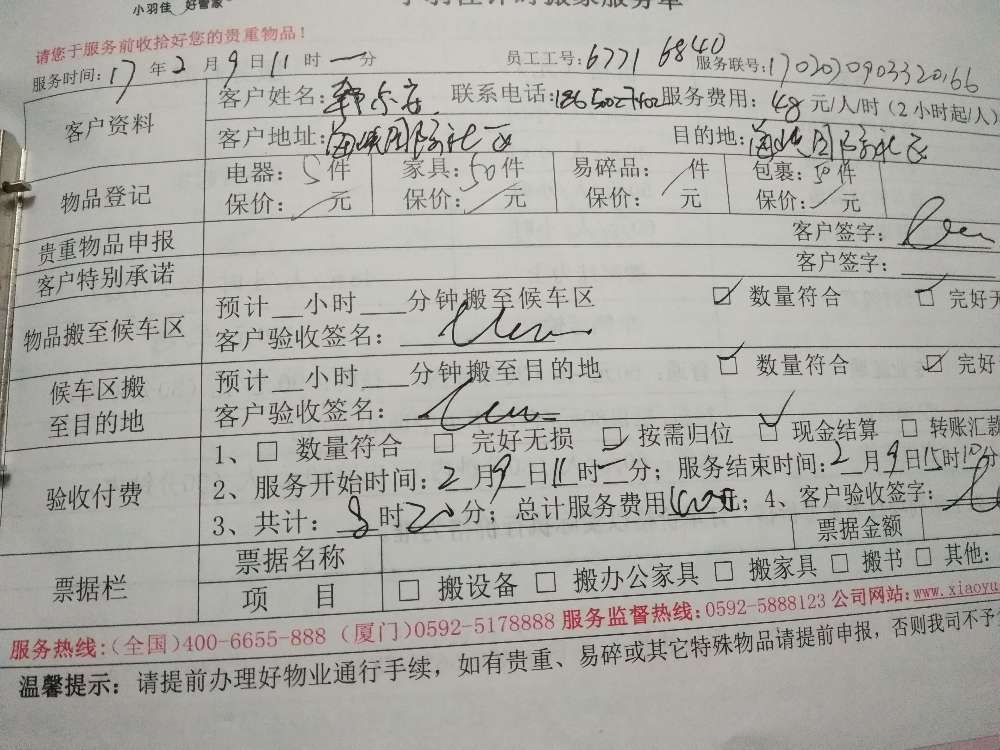 小羽佳 好管家
小羽佳计时搬家服务单
请您于服务前收拾好您的贵重物品！
服务时间：17 年 2 月 9 日 11 时 一 分 员工工号：6771 6840 服务联号：
客户资料 客户姓名： 联系电话： 服务费用：48 元/人/时（2小时起/人）
客户地址：海峡国际社区 目的地：海峡国际社区
物品登记 电器：5 件 家具：50 件 易碎品： 件 包裹：50 件
保价： 元 保价： 元 保价： 元 保价： 元
贵重物品申报 客户签字：
客户特别承诺 客户签字：
物品搬至候车区 预计__小时___分钟搬至候车区 ☑ 数量符合 ☑ 完好无
客户验收签名：
候车区搬至目的地 预计__小时___分钟搬至目的地 ☑ 数量符合 ☑ 完好
客户验收签名：
验收付费 1、□ 数量符合 □ 完好无损 ☑ 按需归位 ☑ 现金结算 □ 转账汇款
2、服务开始时间：2 月 9 日 11 时 一 分；服务结束时间：2 月 9 日 15 时 10 分
3、共计： 时 20 分；总计服务费用 元；4、客户验收签字：
票据栏 票据名称 票据金额
项 目 □ 搬设备 □ 搬办公家具 □ 搬家具 □ 搬书 □ 其他：
服务热线：（全国）400-6655-888（厦门）0592-5178888 服务监督热线：0592-5888123 公司网站：www.xiaoyu
温馨提示：请提前办理好物业通行手续，如有贵重、易碎或其它特殊物品请提前申报，否则我司不予